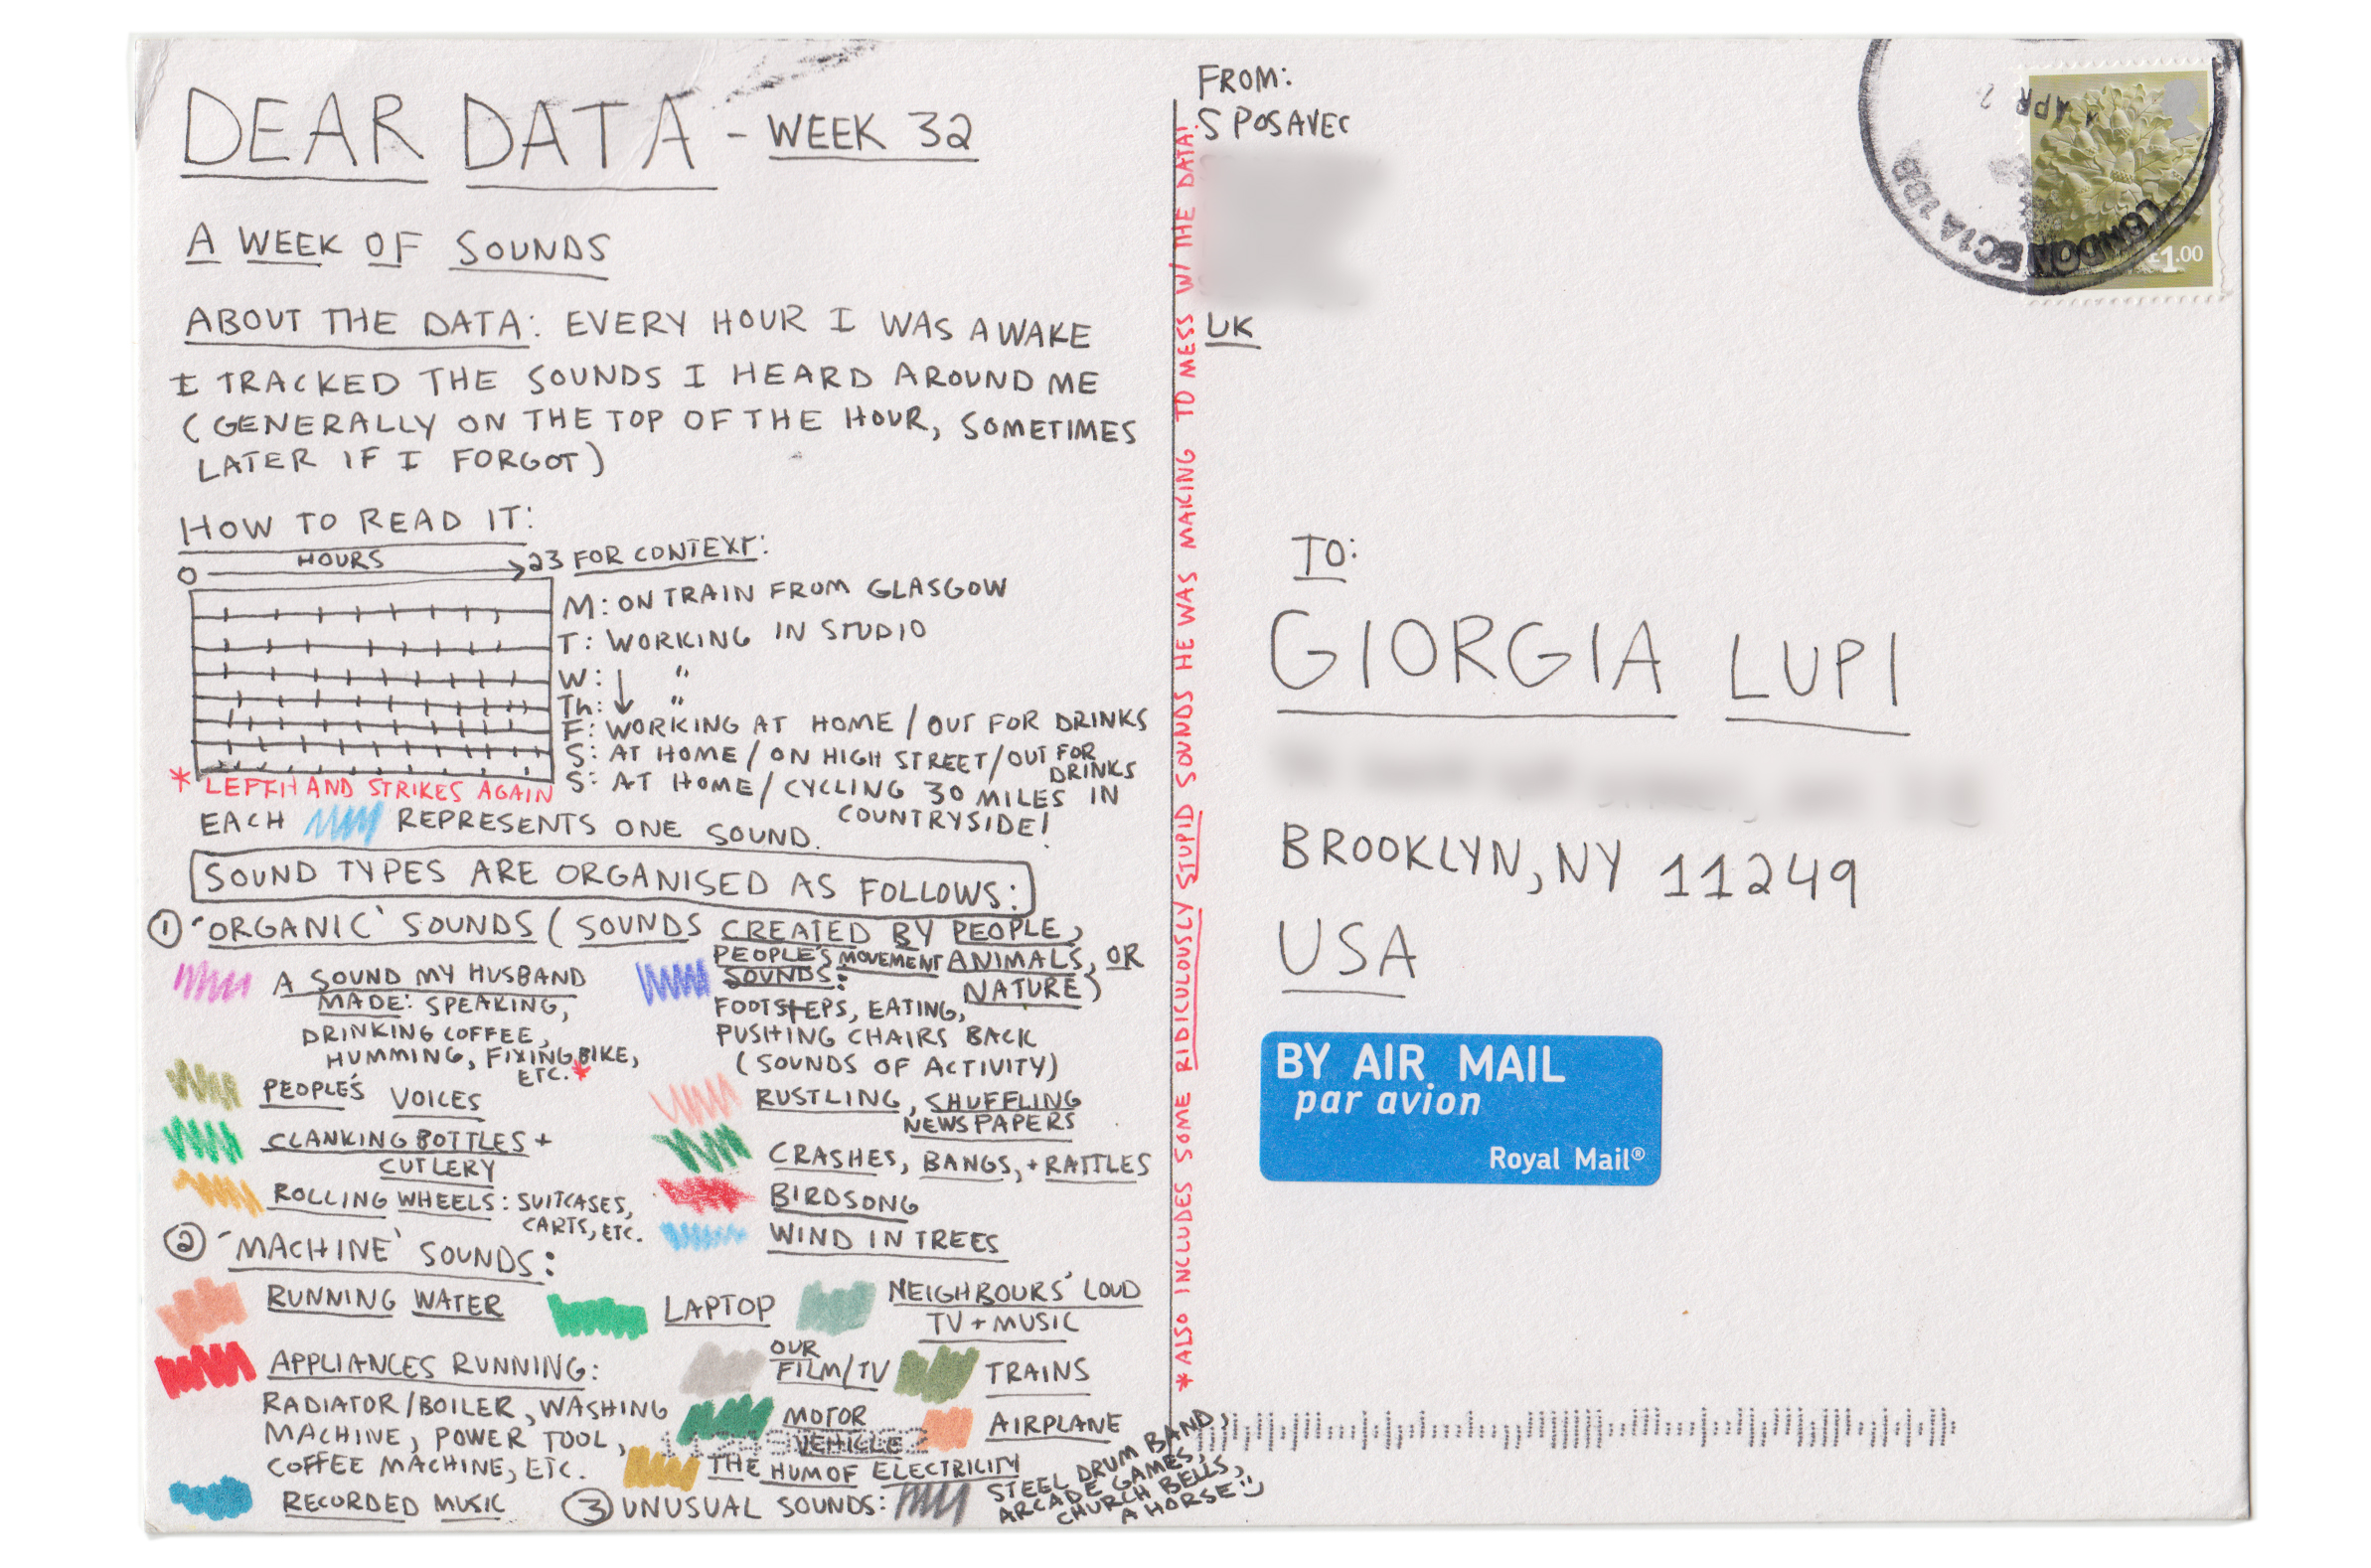 DEAR DATA - WEEK 32
A WEEK OF SOUNDS
ABOUT THE DATA: EVERY HOUR I WAS AWAKE
I TRACKED THE SOUNDS I HEARD AROUND ME
(GENERALLY ON THE TOP OF THE HOUR, SOMETIMES
LATER IF I FORGOT)
HOW TO READ IT:
0 HOURS 23
FOR CONTEXT:
M: ON TRAIN FROM GLASGOW
T: WORKING IN STUDIO
W: ↓ "
Th: "
F: WORKING AT HOME / OUT FOR DRINKS
S: AT HOME / ON HIGH STREET / OUT FOR
DRINKS
S: AT HOME / CYCLING 30 MILES IN
COUNTRYSIDE!
* LEFTHAND STRIKES AGAIN
EACH REPRESENTS ONE SOUND.
SOUND TYPES ARE ORGANISED AS FOLLOWS:
① 'ORGANIC' SOUNDS (SOUNDS CREATED BY PEOPLE,
ANIMALS, OR
NATURE)
A SOUND MY HUSBAND
MADE: SPEAKING,
DRINKING COFFEE,
HUMMING, FIXING BIKE,
ETC.*
PEOPLE'S MOVEMENT
SOUNDS:
FOOTSTEPS, EATING,
PUSHING CHAIRS BACK
(SOUNDS OF ACTIVITY)
PEOPLE'S VOICES
RUSTLING, SHUFFLING
NEWSPAPERS
CLANKING BOTTLES +
CUTLERY
CRASHES, BANGS, + RATTLES
ROLLING WHEELS: SUITCASES,
CARTS, ETC.
BIRDSONG
WIND IN TREES
② 'MACHINE' SOUNDS:
RUNNING WATER
LAPTOP
NEIGHBOURS' LOUD
TV + MUSIC
APPLIANCES RUNNING:
RADIATOR/BOILER, WASHING
MACHINE, POWER TOOL,
COFFEE MACHINE, ETC.
OUR
FILM/TV
TRAINS
MOTOR
VEHICLE
AIRPLANE
THE HUM OF ELECTRICITY
RECORDED MUSIC
③ UNUSUAL SOUNDS:
STEEL DRUM BAND,
ARCADE GAMES,
CHURCH BELLS,
A HORSE
* ALSO INCLUDES SOME RIDICULOUSLY STUPID SOUNDS HE WAS MAKING TO MESS W/ THE DATA!
FROM:
S POSAVEC
UK
LONDON EC1A 1BB
APR
£1.00
TO:
GIORGIA LUPI
BROOKLYN, NY 11249
USA
BY AIR MAIL
par avion
Royal Mail®